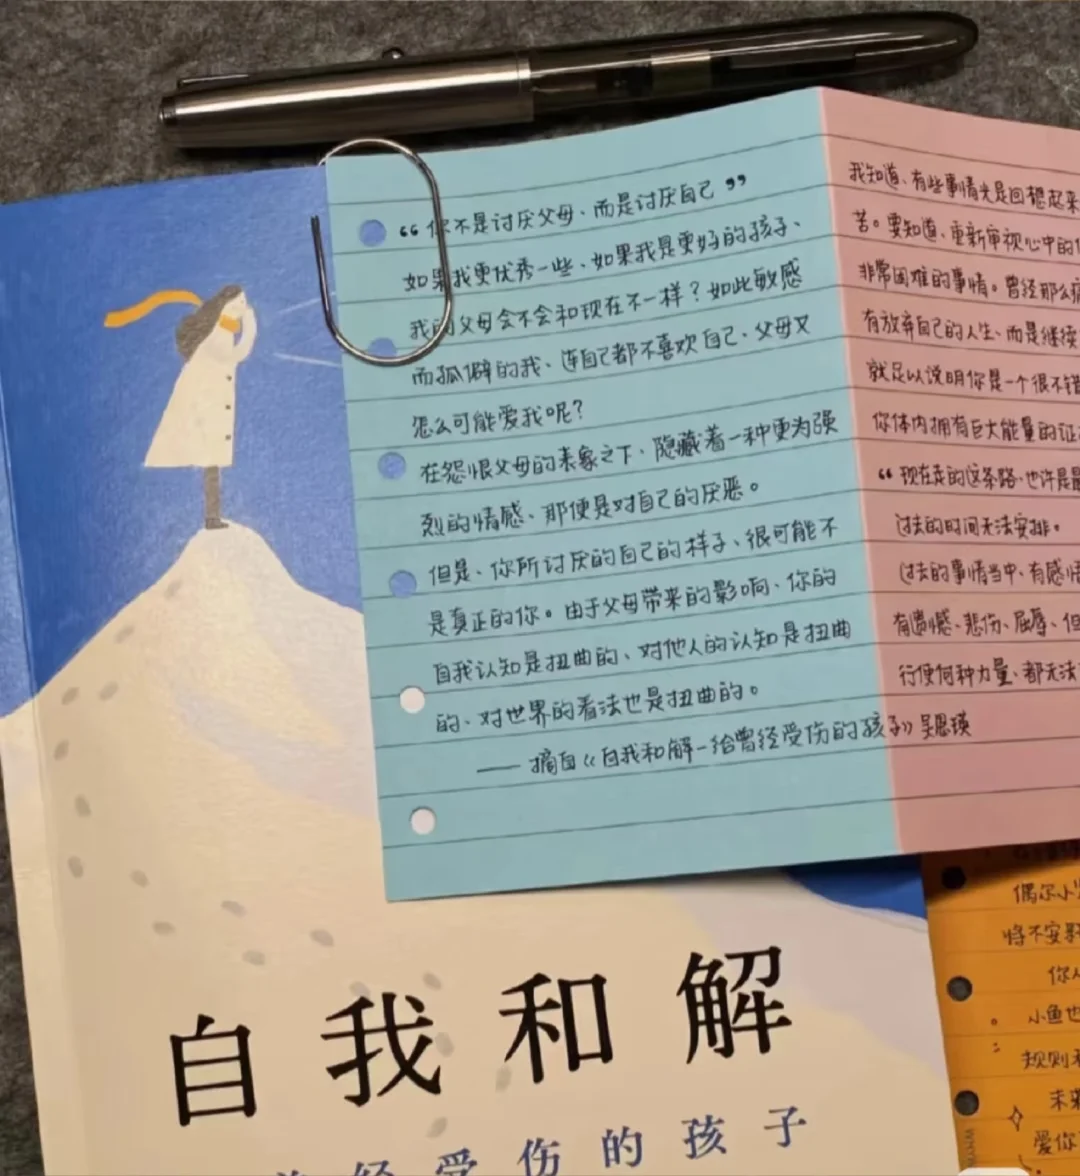 “你不是讨厌父母、而是讨厌自己”
如果我更优秀一些、如果我是更好的孩子、
我的父母会不会和现在不一样？如此敏感
而孤僻的我、连自己都不喜欢自己、父母又
怎么可能爱我呢？
在怨恨父母的表象之下、隐藏着一种更为强
烈的情感、那便是对自己的厌恶。
但是、你所讨厌的自己的样子、很可能不
是真正的你。由于父母带来的影响、你的
自我认知是扭曲的、对他人的认知是扭曲
的、对世界的看法也是扭曲的。
—— 摘自《自我和解-给曾经受伤的孩子》吴恩瑛
我知道、有些事情光是回想起来
苦。要知道、重新审视心中的
非常困难的事情。曾经那么
有放弃自己的人生、而是继续
就足以说明你是一个很不错
你体内拥有巨大能量的证
“现在走的这条路、也许是最
过去的时间无法安排。
过去的事情当中、有感
有遗憾、悲伤、屈辱、但
行使何种力量、都无法
偶尔小
将不安
你
小鱼也
规则
未来
爱你
自我和解
经受伤的孩子